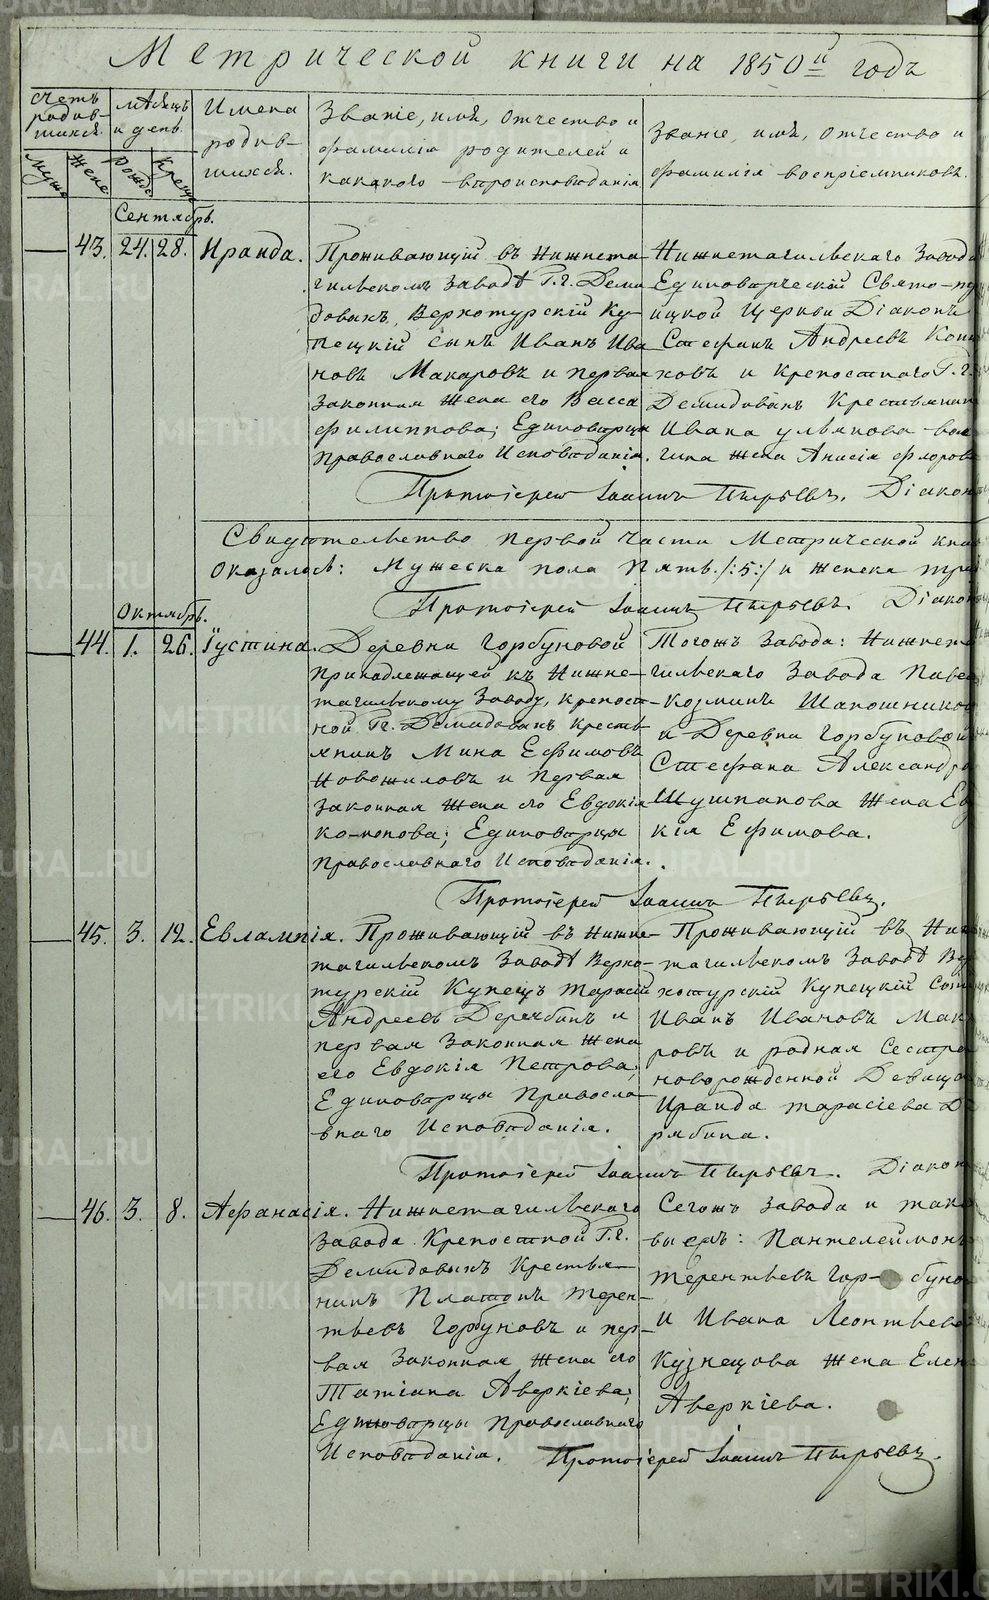 Метрической книги на 1850й годъ
Счетъ родив-шихся.
Мужс Женс
Мѣсяцъ и день.
Рожд Крещ
Имена родив-шихся.
Званіе, имя, отчество и
фамилія родителей и
какого вѣроисповѣданія
Званіе, имя, отчество и
фамилія воспріемниковъ.
Сентябрь.
43. 24. 28. Ираида.
Проживающій въ Нижнета-
гильскомъ Заводѣ Г.г. Деми
довыхъ, Верхотурскій Ку-
пецкій сынъ Иванъ Ива
новъ Макаровъ и первая
законная жена его Васса
Филиппова; Единовѣрцы
Православнаго Исповѣданія.
Нижнетагильскаго Завода
Единовѣрческой Свято-
ицкой Церкви Діаконъ
Стефанъ Андреевъ
новъ и крепостнаго Г.г.
Демидовыхъ Крестьянин
Ивана Ульянова
гина жена Анисія Флорова
Протоіерей Іоаннъ Пырьевъ. Діакон
Свидѣтельство первой части Метрической кни
Оказалось: Мужеска пола пять /:5:/ и женска три
Протоіерей Іоаннъ Пырьевъ. Діакон
Октябрь.
44. 1. 26. Іустина.
Деревни Горбуновой
принадлежащей къ Нижне-
тагильскому Заводу, крепост-
ной Гг. Демидовыхъ кресть-
янинъ Мина Ефимовъ
Новожиловъ и первая
законная жена его Евдокія
Кононова; Единовѣрцы
Православнаго Исповѣданія.
Тогожъ Завода: Нижнета
гильскаго Завода Павел
Козминъ Шапошников
и Деревни Горбуновой
Стефана Александро
Шушпанова жена Ев
кія Ефимова.
Протоіерей Іоаннъ Пырьевъ.
45. 3. 12. Евлампія.
Проживающій въ Нижне-
тагильскомъ Заводѣ Верхо-
турскій Купецъ Тарасій
Андреевъ Дерябинъ и
первая законная жена
его Евдокія Петрова;
Единовѣрцы Правосла-
внаго Исповѣданія.
Проживающій въ Ниж
тагильскомъ Заводѣ Вер
хотурскій Купецкій сын
Иванъ Ивановъ Мака
ровъ и родная сестра
новорожденной Девица
Ираида Тарасіева Де
рябина.
Протоіерей Іоаннъ Пырьевъ. Діакон
46. 3. 8. Афанасія.
Нижнетагильскаго
Завода Крепостной Г.г.
Демидовыхъ Крестья-
нинъ Платонъ Терен-
тьевъ Горбуновъ и пер-
вая законная жена его
Татіана Аверкіева;
Единовѣрцы Православнаго
Исповѣданія.
Сегожъ Завода и тако
выежъ: Пантелеймонъ
Терентьевъ Гор-буно
и Ивана Леонтьева
Кузнецова жена Елен
Аверкіева.
Протоіерей Іоаннъ Пырьевъ.
METRIKI.GASO-URAL.RU